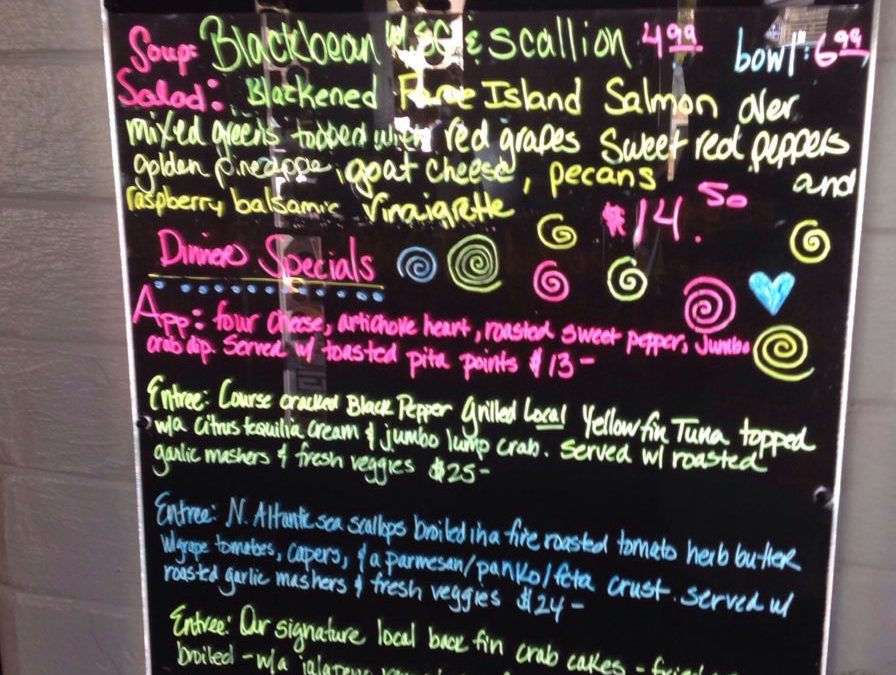 Soup: Blackbean w/ SC & scallion 4.99 bowl: 6.99
Salad: Blackened Faroe Island Salmon over
mixed greens topped with red grapes sweet red peppers
golden pineappe, goat cheese, pecans and
raspberry balsamic vinaigrette $14.50
Dinner Specials
App: four cheese, artichoke heart, roasted sweet pepper, jumbo
crab dip. Served w/ toasted pita points $13-
Entree: Course cracked Black Pepper Grilled Local Yellowfin Tuna topped
w/a citrus tequilia cream & jumbo lump crab. Served w/ roasted
garlic mashers & fresh veggies $25-
Entree: N. Altantic sea scallops broiled in a fire roasted tomato herb butter
w/grape tomatoes, capers, & a parmesan/panko/feta crust. served w/
roasted garlic mashers & fresh veggies $24-
Entree: Our signature local back fin crab cakes - fried
broiled - w/a jalapeno